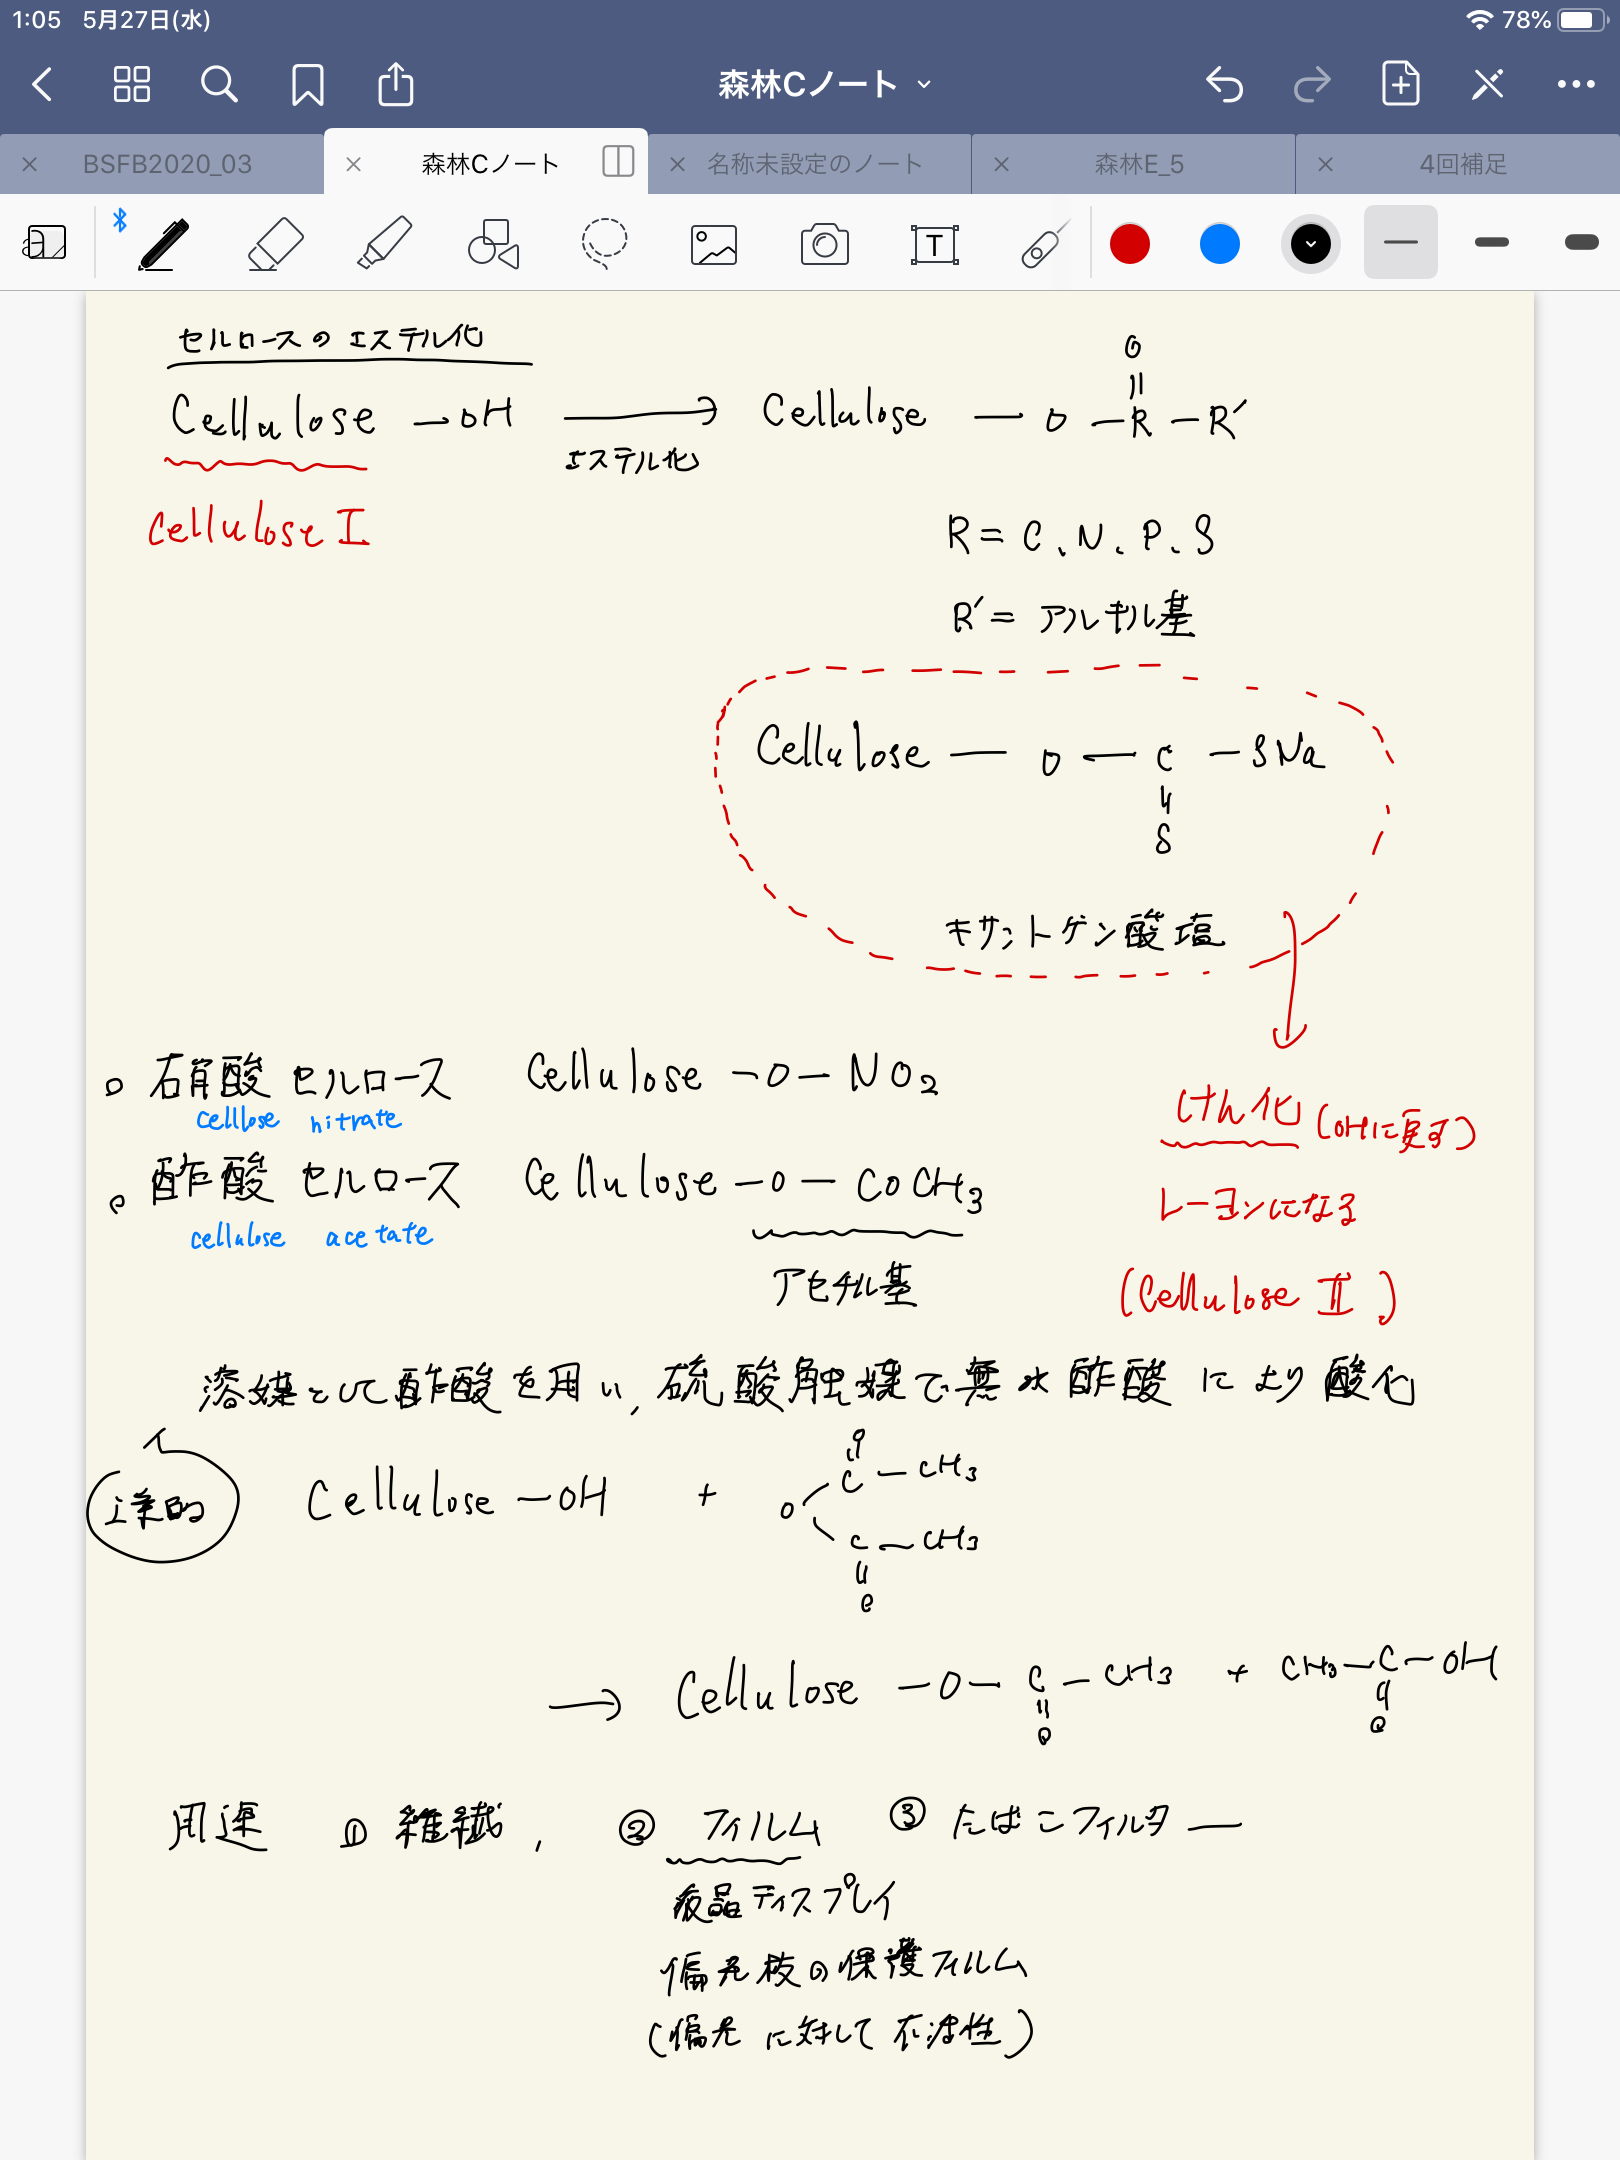 1:05 5月27日(水) 78%
森林Cノート
BSFB2020_03 森林Cノート 名称未設定のノート 森林E_5 4回補足
セルロースのエステル化
O
Cellulose — OH → Cellulose — O — R — R′
エステル化
Cellulose I
R = C、N、P、S
R′ = アルキル基
Cellulose — O — C — SNa
S
キサントゲン酸塩
硝酸セルロース Cellulose — O — NO₂
celllose nitrate
けん化 (OHに戻す)
酢酸セルロース Cellulose — O — COCH₃
cellulose acetate
レーヨンになる
アセチル基
(Cellulose II)
溶媒として酢酸を用い、硫酸触媒で無水酢酸により酸化
工業的
Cellulose — OH + O
O
C — CH₃
C — CH₃
O
→ Cellulose — O — C — CH₃ + CH₃ — C — OH
O O
用途 ① 繊維, ② フィルム ③ たばこフィルター
液晶ディスプレイ
偏光板の保護フィルム
(偏光に対して不活性)